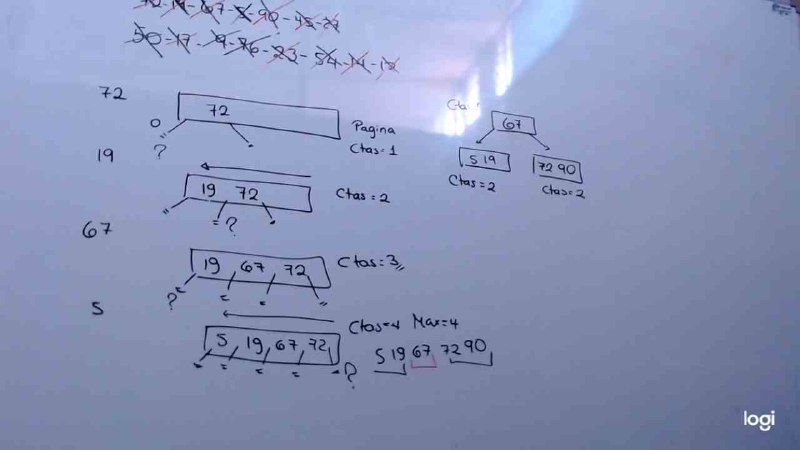 72-19-67-5-90-45-21
50-17-9-76-23-54-14-12
72
72
0
Pagina
?
Ctas=1
19
19 72
Ctas=2
=?
67
19 67 72
Ctas=3
?
5
Ctas=4 Max=4
5 19 67 72
?
5 19 67 72 90
67
5 19
72 90
Ctas=2
Ctas=2
logi